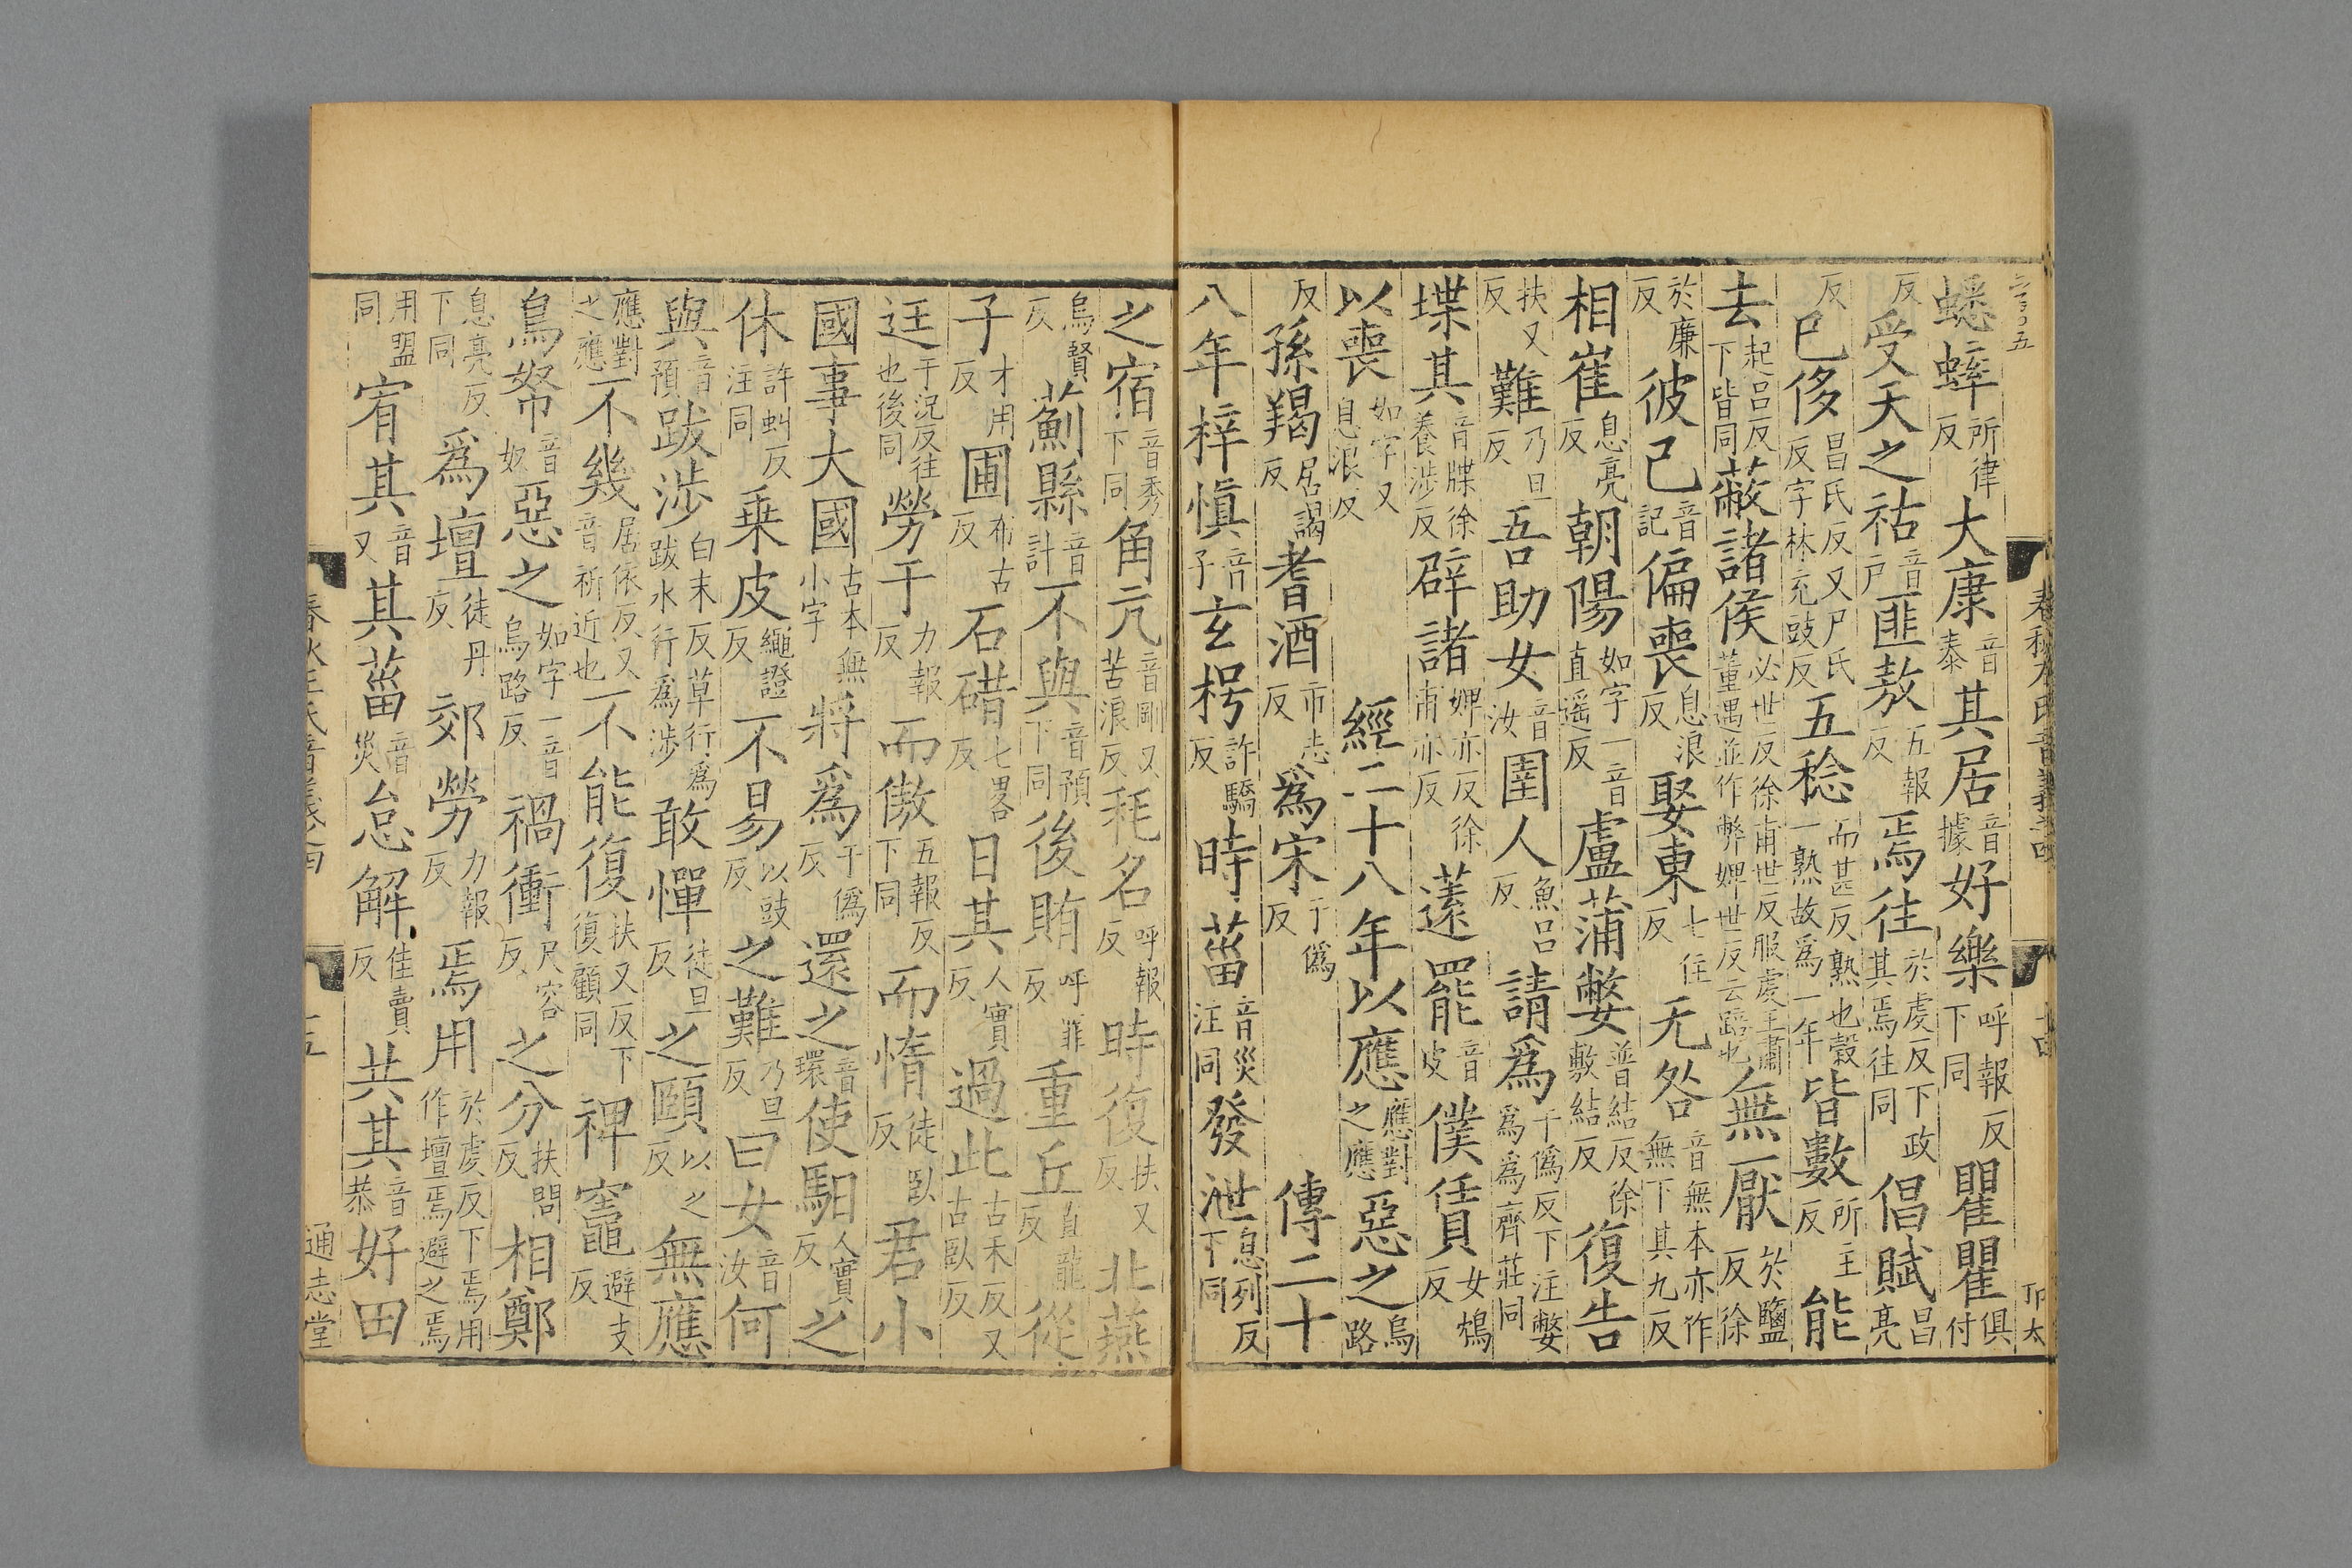 蟋蟀所律反大康音泰其居音據好樂呼報反下同瞿瞿俱付
反受天之祜音戶匪敖五報反焉往於虔反下政其焉往同倡賦昌亮
反已侈昌氏反又尸氏反字林充豉反五稔而甚反熟也穀一熟故爲一年皆數所主反能
去起呂反下皆同蔽諸侯必世反徐甫世反服虔王肅董遇並作弊婢世反云踣也無厭於鹽反徐
於廉反彼己音記偏喪息浪反娶東七住反无咎音無本亦作無下其九反
相崔息亮反朝陽如字一音直遥反盧蒲嫳普結反徐敷結反復告
扶又反難乃旦反吾助女音汝圉人魚呂反請爲于僞反下注嫳爲爲齊莊同
堞其音牒徐養涉反辟諸婢亦反徐甫亦反薳罷音皮僕賃女鴆反
以喪如字又息浪反 經二十八年以應應對之應惡之烏路
反孫羯居謁反耆酒市志反爲宋于僞反 傳二十
八年梓愼音子玄枵許驕反時菑音災注同發泄息列反下同
之宿音秀下同角亢音剛又苦浪反秏名呼報反時復扶又反北燕
烏賢反薊縣音計不與音預下同後賄呼罪反重丘直龍反從
子才用反圃布古反石碏七畧反日其人實反過此古禾反又古臥反
迋于況反往也後同勞于力報反而傲五報反下同而惰徒臥反君小
國事大國古本無小字將爲于僞反還之音環使馹人實反之
休許虯反注同乗皮繩證反不易以豉反之難乃旦反曰女音汝何
與音預跋涉白末反草行爲跋水行爲涉敢憚徒旦反之頤以之反無應
應對之應不幾居依反又音祈近也不能復扶又反下復顧同禆竈避支反
鳥帑音奴惡之如字一音烏路反禍衝尺容反之分扶問反相鄭
息亮反下同爲壇徒丹反郊勞力報反焉用於虔反下焉用作壇焉避之焉
用盟同宥其音又其菑音災怠解佳賣反共其音恭好田
通志堂